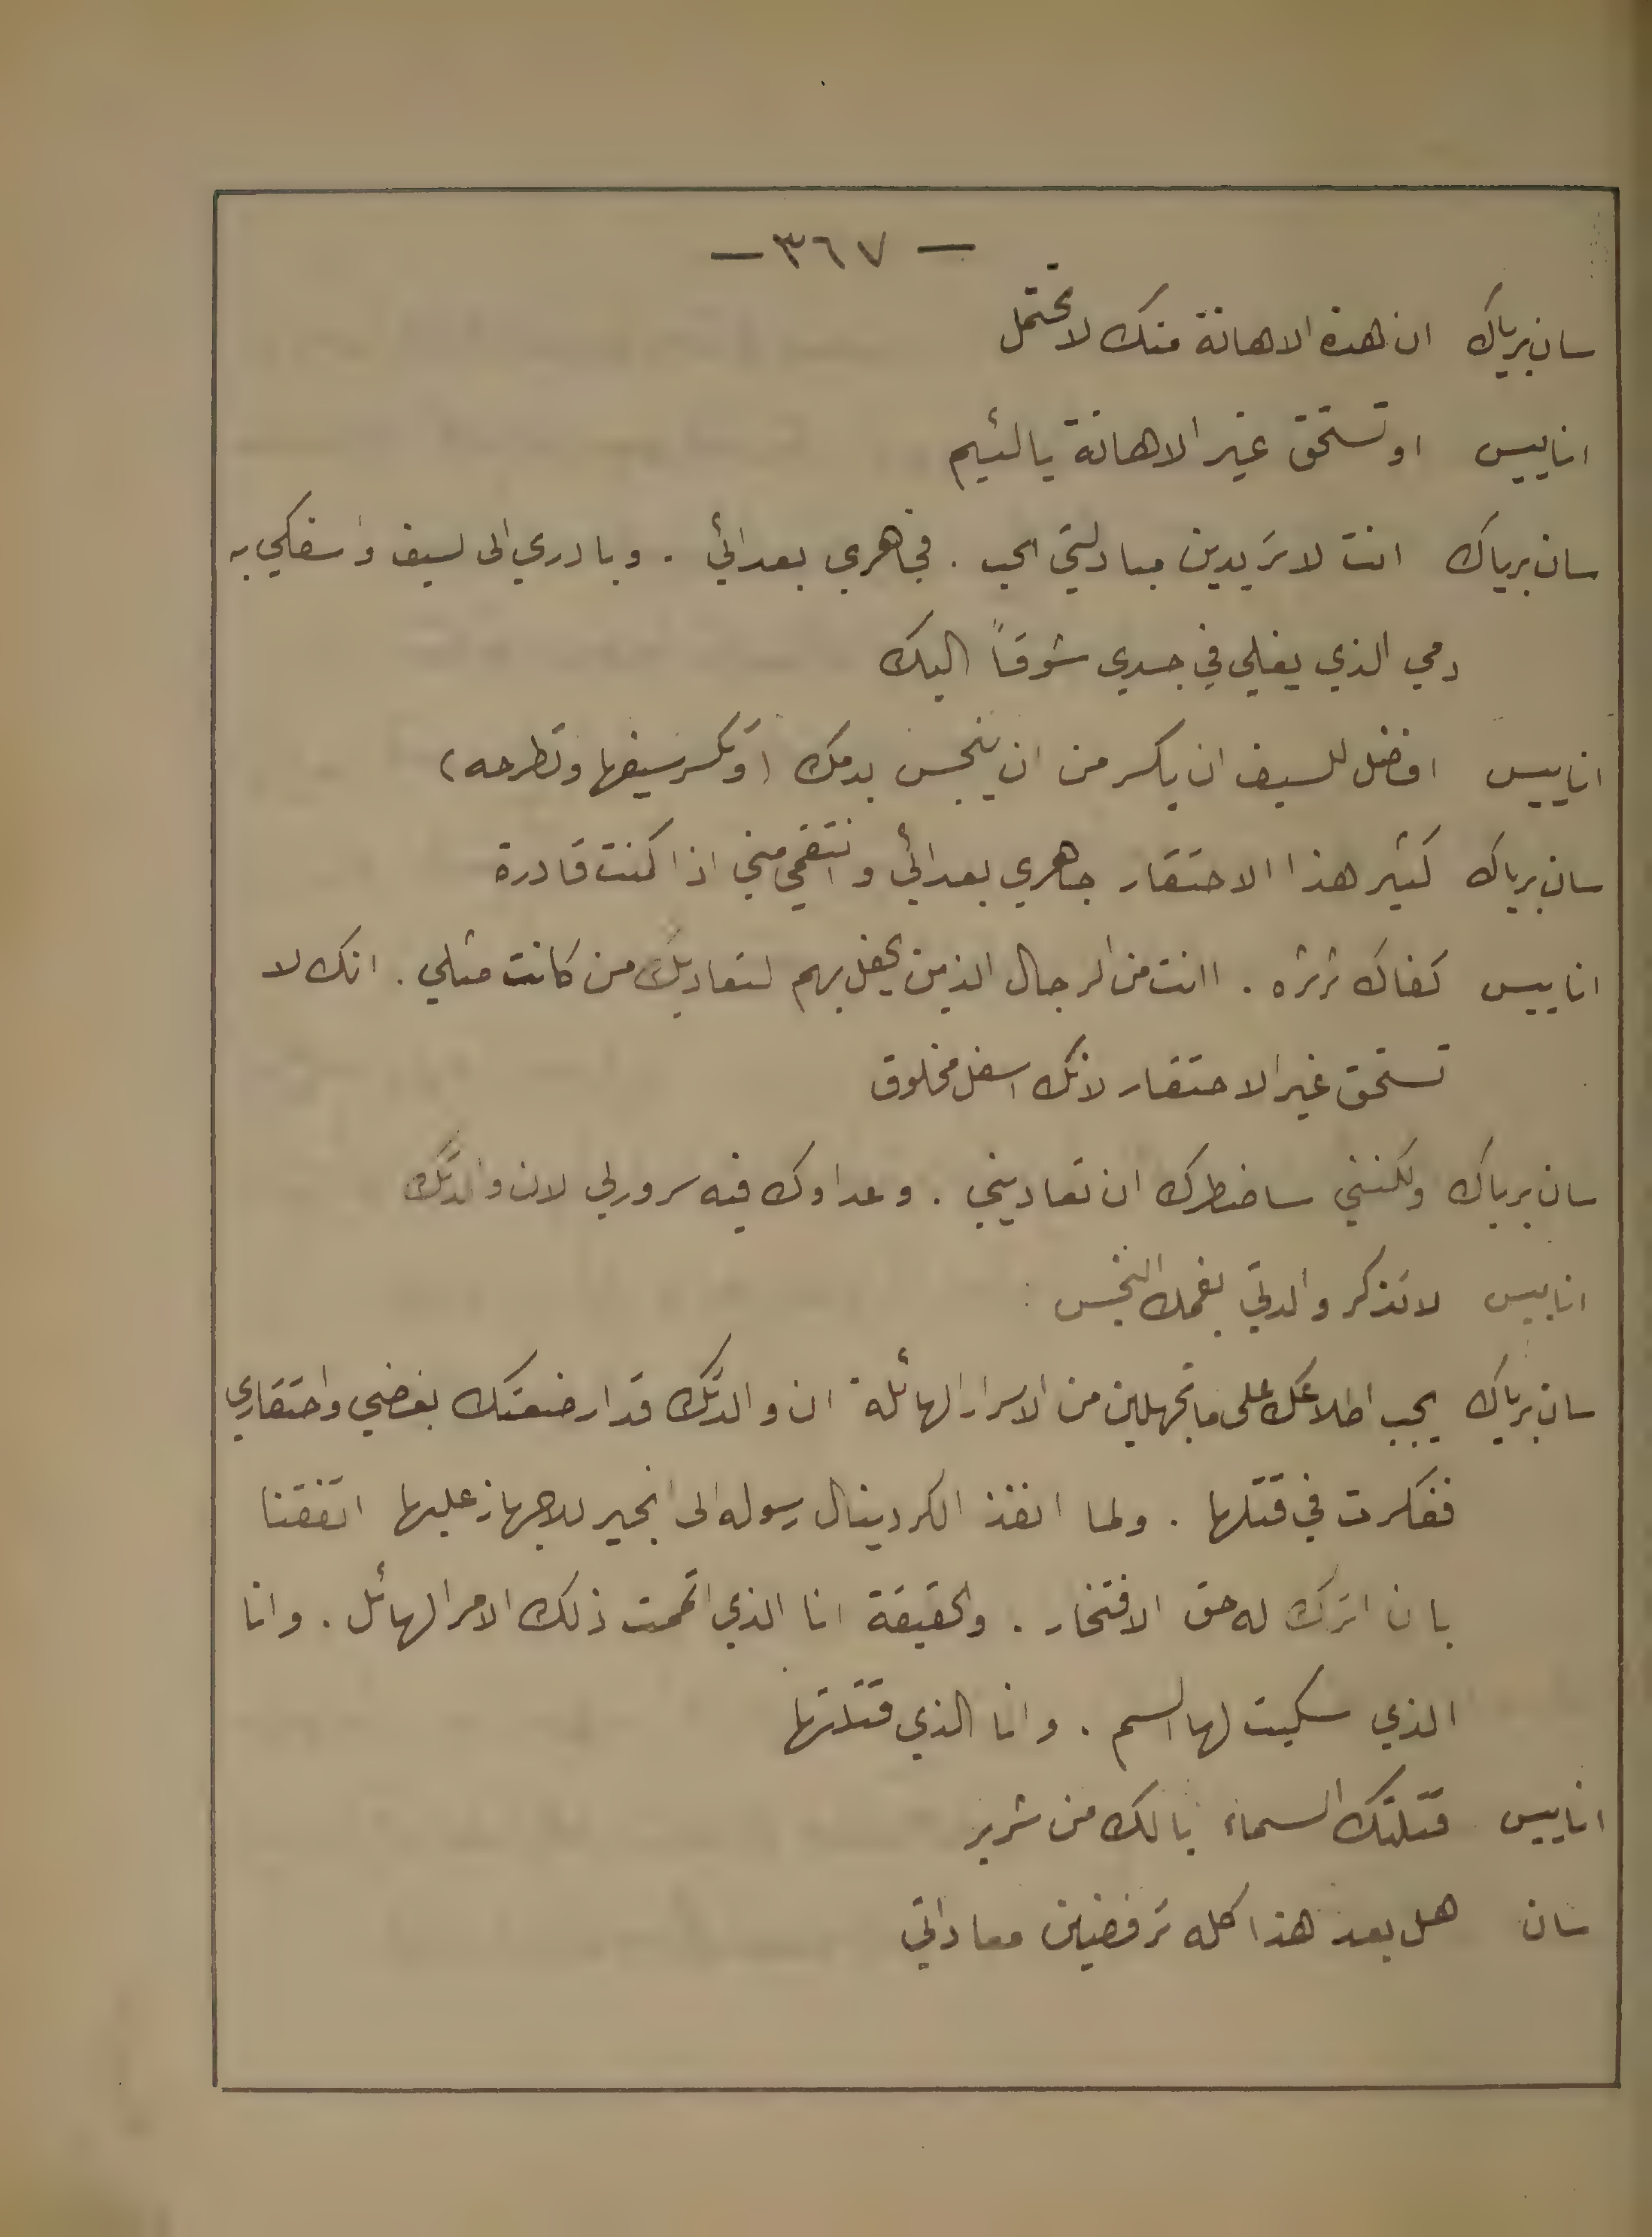 — ٣٦٧ —
سان برياك ان هذه الاهانة منك لا تحتمل
اناييس او تستحق غير الاهانة يا لئيم
سان برياك انت لا تريدين مبادلتي الحب . فجاهري بعدائي . وبادري الى لسيف واسفكي به
دمي الذي يغلي في جسدي شوقاً اليك
اناييس افضل للسيف ان يكسر من ان ينجس بدمك (وتكسر سيفها وتطرحه)
سان برياك كثير هذا الاحتقار جاهري بعدائي وانتقمي مني اذا كنت قادرة
اناييس كفاك ثرثره . اانت من الرجال الذين يحفل بهم لتعاديك من كانت مثلي . انك لا
تستحق غير الاحتقار لانك اسفل مخلوق
سان برياك ولكنني ساضطرك ان تعاديني . وعداوك فيه سرور لي لان والدتك
اناييس لا تذكر والدتي بفمك النجس
سان برياك يجب اطلاعك على ما تجهلين من الاسرار الهائلة ان والدتك قد ارضعتك بغضي واحتقاري
ففكرت في قتلها . ولما انفذ الكردينال رسوله الى انجير للاجهاز عليها اتفقنا
بان اترك له حق الافتخار . والحقيقة انا الذي اتممت ذلك الامر الهائل . وانا
الذي سكبت لها السم . وانا الذي قتلتها
اناييس قتلتك السماء يا لك من شرير
سان هل بعد هذا كله ترفضين معاداتي